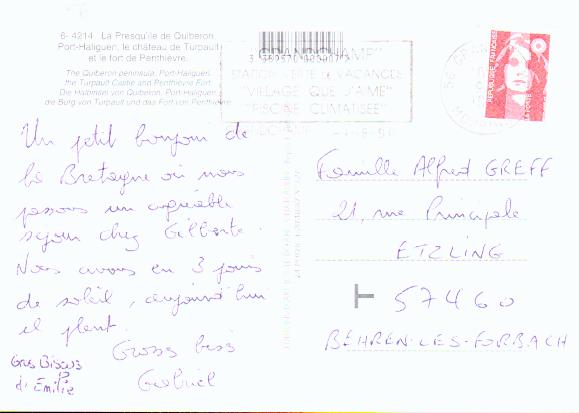 6-4214 La Presqu'île de Quiberon
Port-Haliguen, le château de Turpault
et le fort de Penthièvre.
The Quiberon peninsula, Port-Haliguen,
the Turpault Castle and Penthievre Fort.
Die Halbinsel von Quiberon, Port-Haliguen,
die Burg von Turpault und das Fort von Penthièvre.
"GRANDCHAMP"
STATION VERTE de VACANCES
"VILLAGE QUE J'AIME"
"PISCINE CLIMATISEE"
56 GRAND
REPUBLIQUE FRANÇAISE
LA POSTE
Un petit bonjour de
la Bretagne où nous
passons un agréable
séjour chez Gilberte.
Nous avons eu 3 jours
de soleil, aujourd'hui
il pleut.
Gross biss
Gabriel
Gros Bisous
di Emilie
Famille Alfred GREFF
21, rue Principale
ETZLING
57460
BEHREN-LES-FORBACH